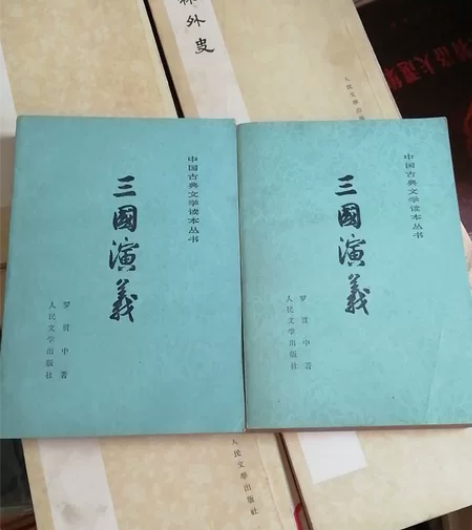 中国古典文学读本丛书
三國演義
罗贯中著
人民文学出版社
中国古典文学读本丛书
三國演義
罗贯中著
人民文学出版社
林外史
人民文学出版
人民文学出版社